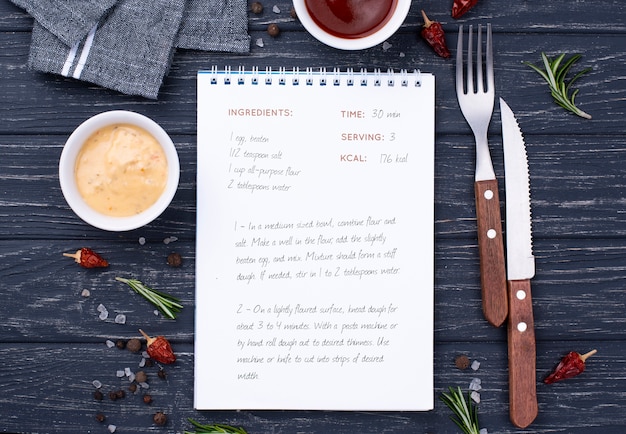 INGREDIENTS:
1 egg, beaten
1/2 teaspoon salt
1 cup all-purpose flour
2 tablespoons water
TIME: 30 min
SERVING: 3
KCAL: 176 kcal
1 - In a medium sized bowl, combine flour and
salt. Make a well in the flour, add the slightly
beaten egg, and mix. Mixture should form a stiff
dough. If needed, stir in 1 to 2 tablespoons water.
2 - On a lightly floured surface, knead dough for
about 3 to 4 minutes. With a pasta machine or
by hand roll dough out to desired thinness. Use
machine or knife to cut into strips of desired
width.